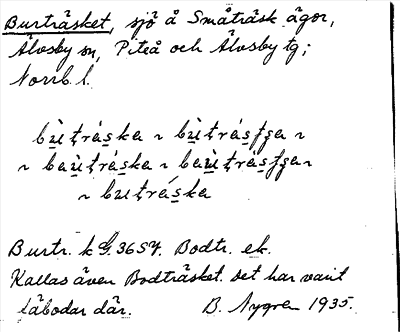 Burträsket, sjö å Småträsk ägor,
Älvsby sn, Piteå och Älvsby tg;
Norrb. l.
bu̠tṛás̠ka ~ bu̠tṛás̠ʃʒa ~
~ bau̠tṛás̠ka ~ bau̠tṛás̠ʃʒa ~
~ butṛás̠ka
Burtr. k G. 36SV. Bodtr. ek.
Kallas även Bodträsket. Det har varit
fäbodar där. B. Nygren 1935.